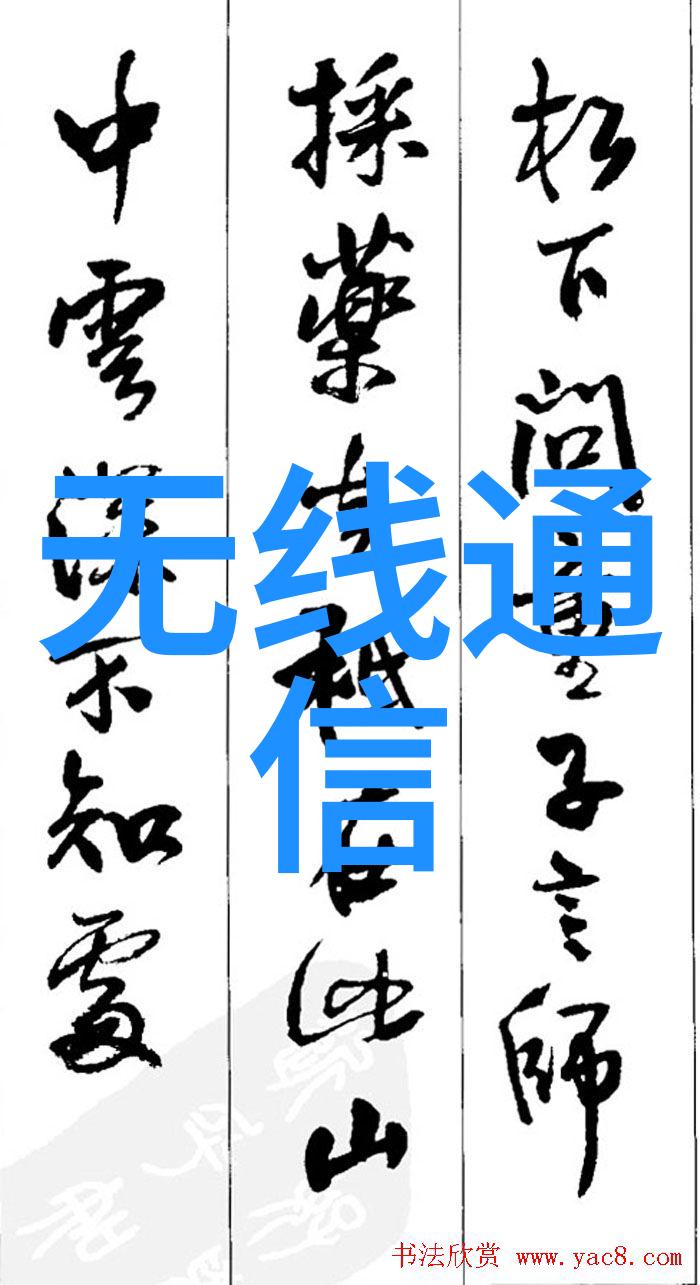 松下問童子言師
採藥去秖在此山
中雲深不知處
无线通
信
书法欣赏 www.yac8.com